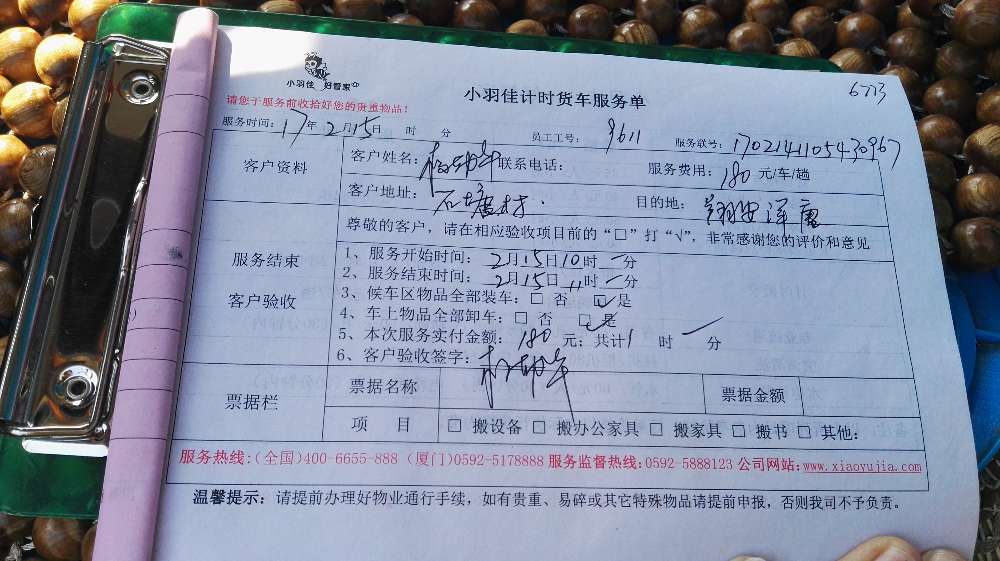 小羽佳 好管家
小羽佳计时货车服务单
6773
请您于服务前收拾好您的贵重物品！
服务时间：17年2月15日 时 分 员工工号：9611 服务联号：1702141105430967
客户资料
客户姓名： 联系电话： 服务费用：180元/车/趟
客户地址： 目的地：翔安洋唐
尊敬的客户，请在相应验收项目前的“□”打“√”，非常感谢您的评价和意见
服务结束
客户验收
1、服务开始时间：2月15日10时一分
2、服务结束时间：2月15日11时一分
3、候车区物品全部装车：□ 否 ☑是
4、车上物品全部卸车：□ 否 ☑是
5、本次服务实付金额：180元；共计1时一分
6、客户验收签字：
票据栏
票据名称 票据金额
项 目 □ 搬设备 □ 搬办公家具 □ 搬家具 □ 搬书 □ 其他：
服务热线：(全国)400-6655-888 (厦门)0592-5178888 服务监督热线：0592-5888123 公司网站：www.xiaoyujia.com
温馨提示：请提前办理好物业通行手续，如有贵重、易碎或其它特殊物品请提前申报，否则我司不予负责。